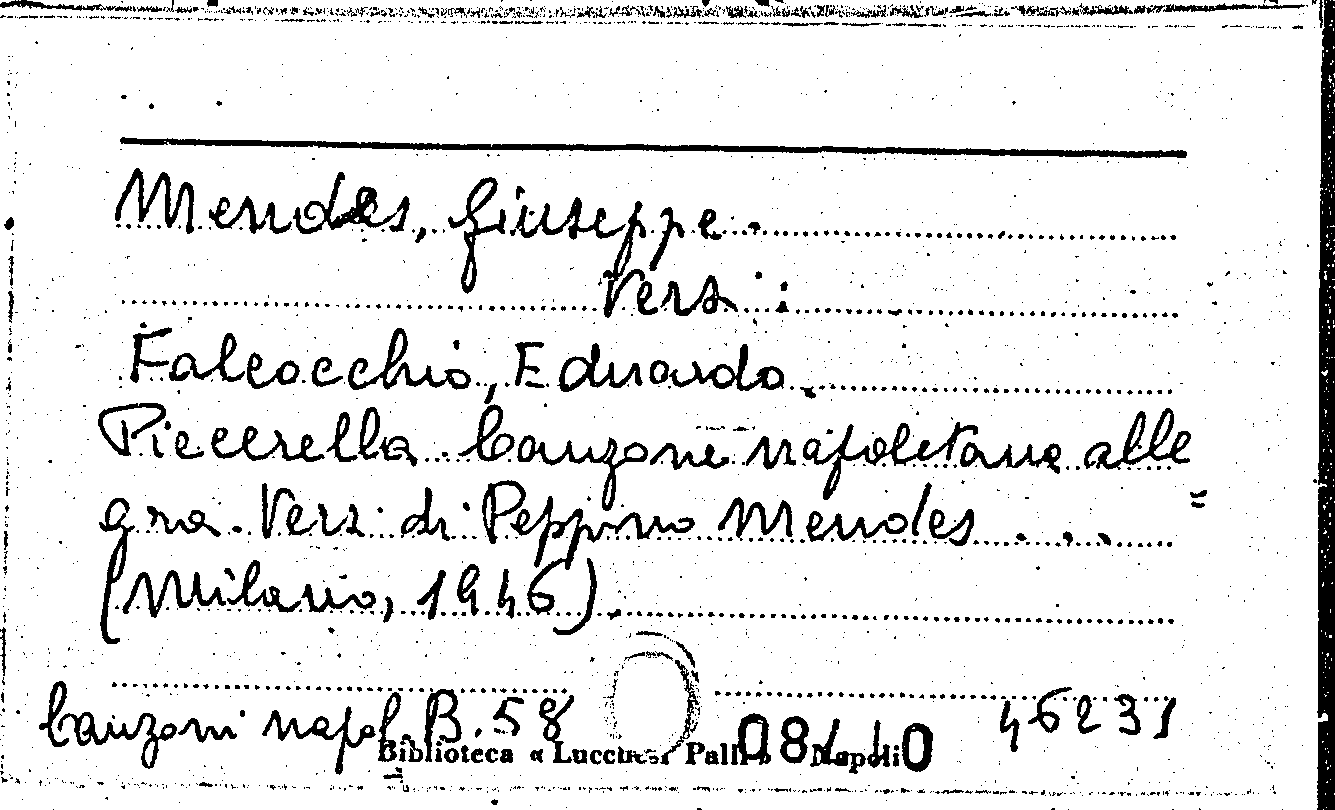 Mendes, Giuseppe.
Versi:
Falcocchio, Eduardo.
Piccerella. Canzone napoletana alle
gra. Versi di Peppino Mendes ...
(Milano, 1946).
Canzoni napol. B. 58
46231
Biblioteca « Lucchesi Palli » Napoli